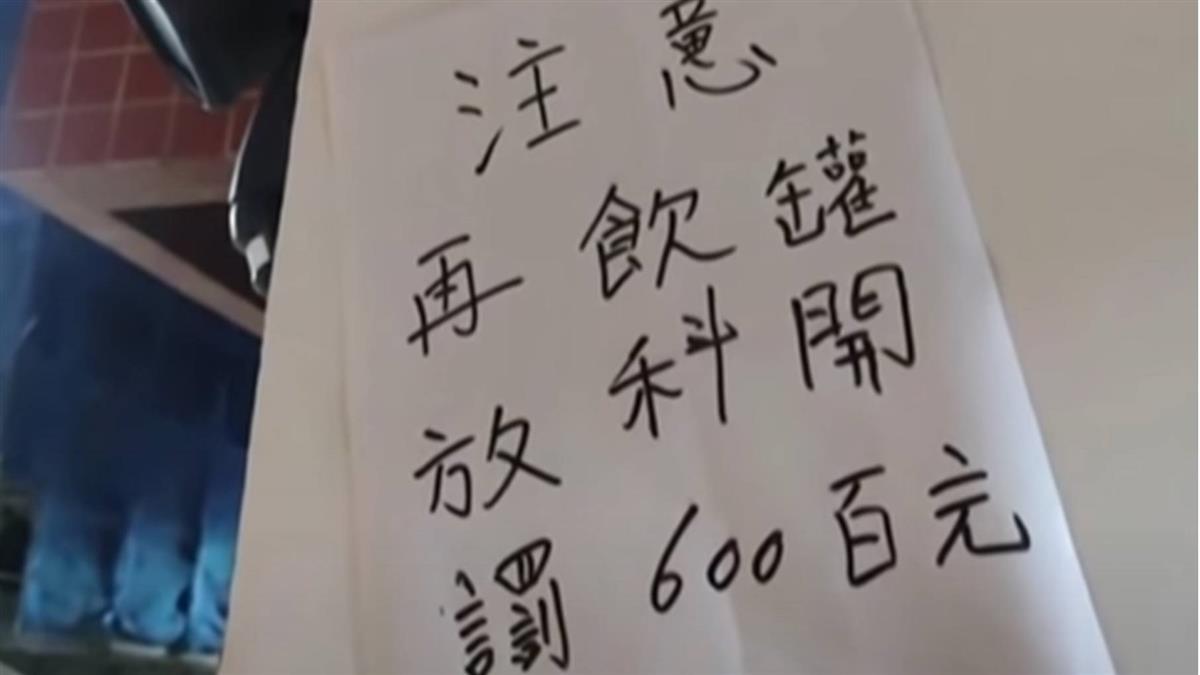 注意
再放
飲科
罐開
罰600百元